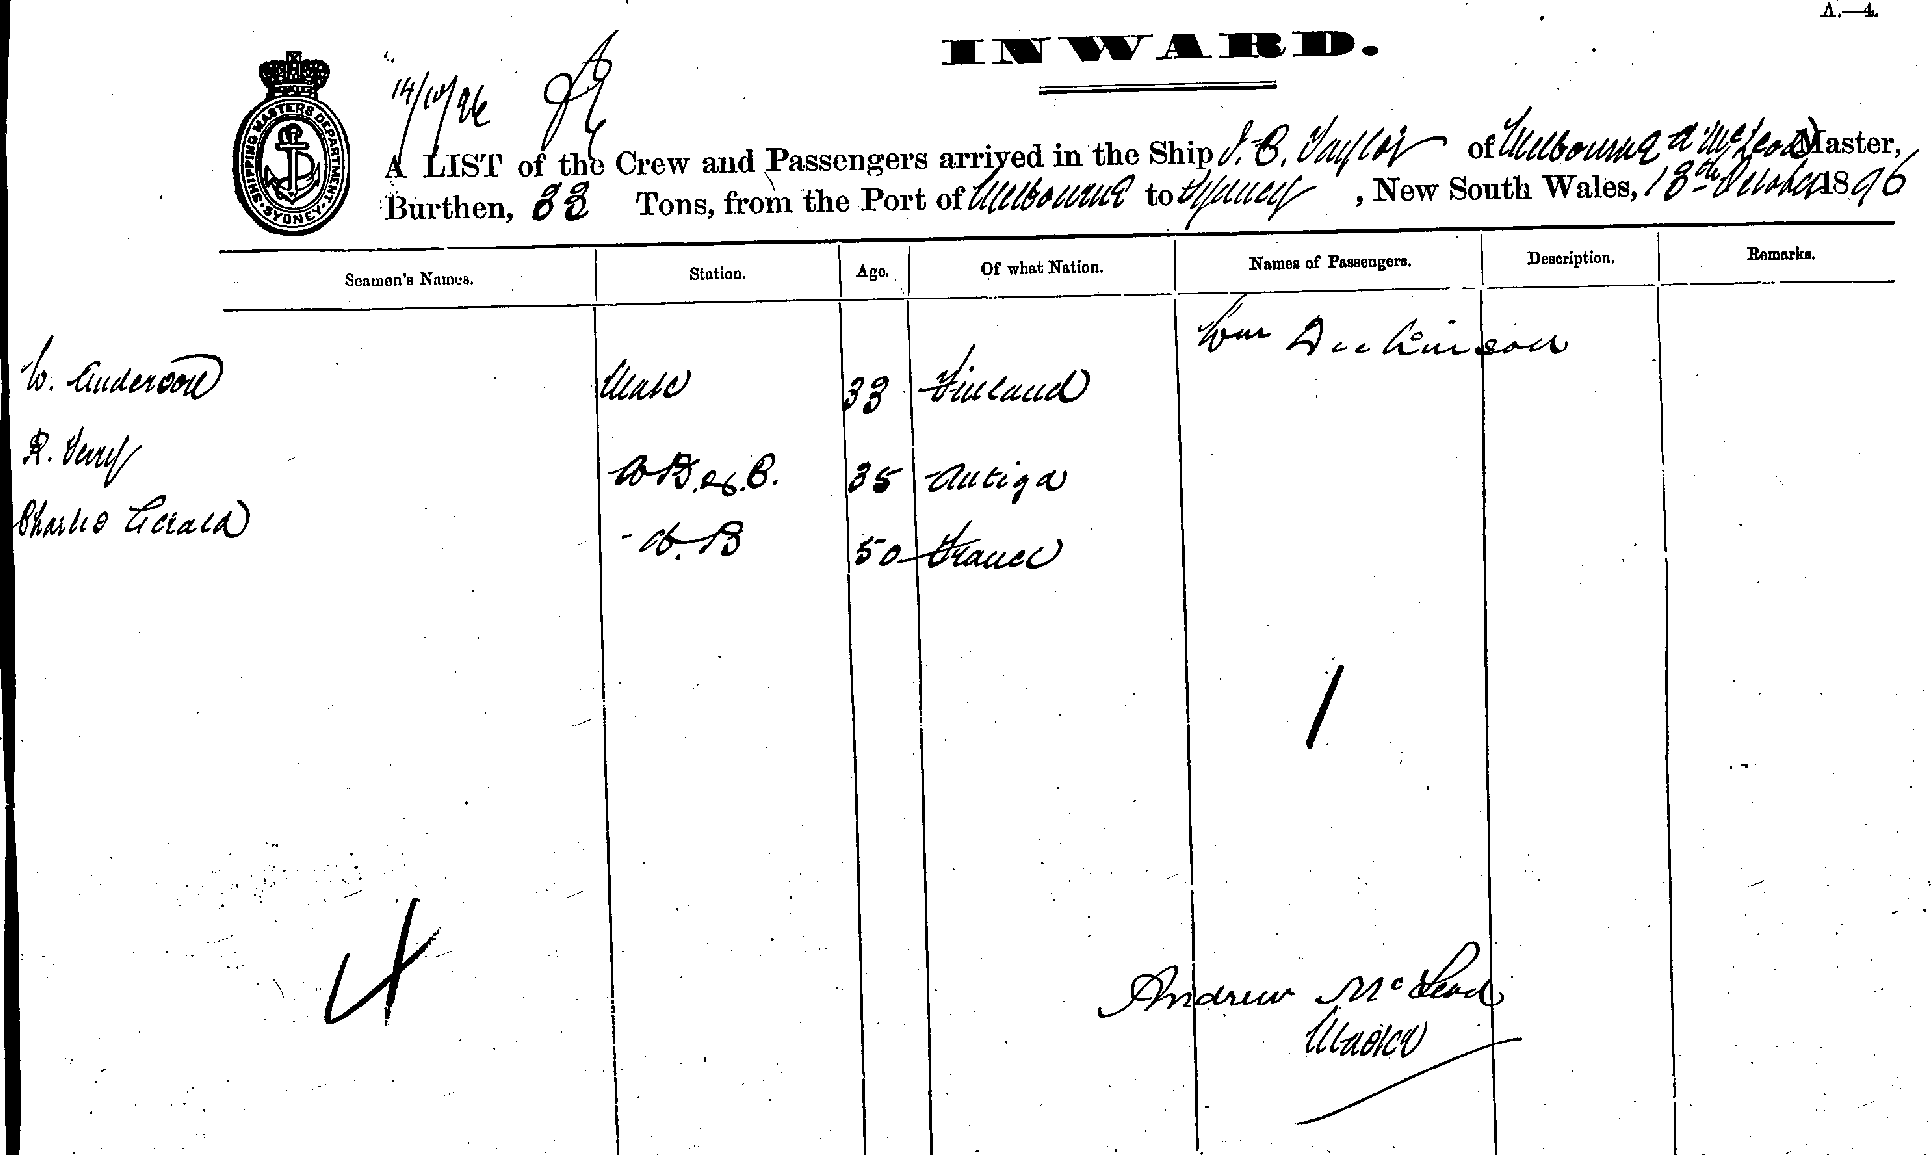 A.—4.
INWARD.
14/10/96
SHIPPING MASTERS DEPARTMENT SYDNEY
A LIST of the Crew and Passengers arrived in the Ship J. B. Taylor of Melbourne A McLeod Master,
Burthen, 33 Tons, from the Port of Melbourne to Sydney, New South Wales, 13th October 1896
Seamen's Names. Station. Age. Of what Nation. Names of Passengers. Description. Remarks.
Wm Dickinson
W. Anderson Mate 33 Finland
R. Terry A B & C. 35 Antiga
Charles Gerald A. B 50 France
1
4
Andrew McLeod
Master